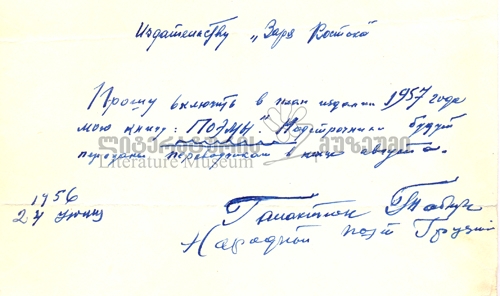 Издательству „Заря Востока"
Прошу включить в план издании 1957 года
мою книгу: „Поэмы". Подстрочники будут
переданы переводчикам в конце августа.
ლიტერატურის მუზეუმი
Literature Museum
1956
24 июня
Галактион Табидзе
Народной поэт Грузии